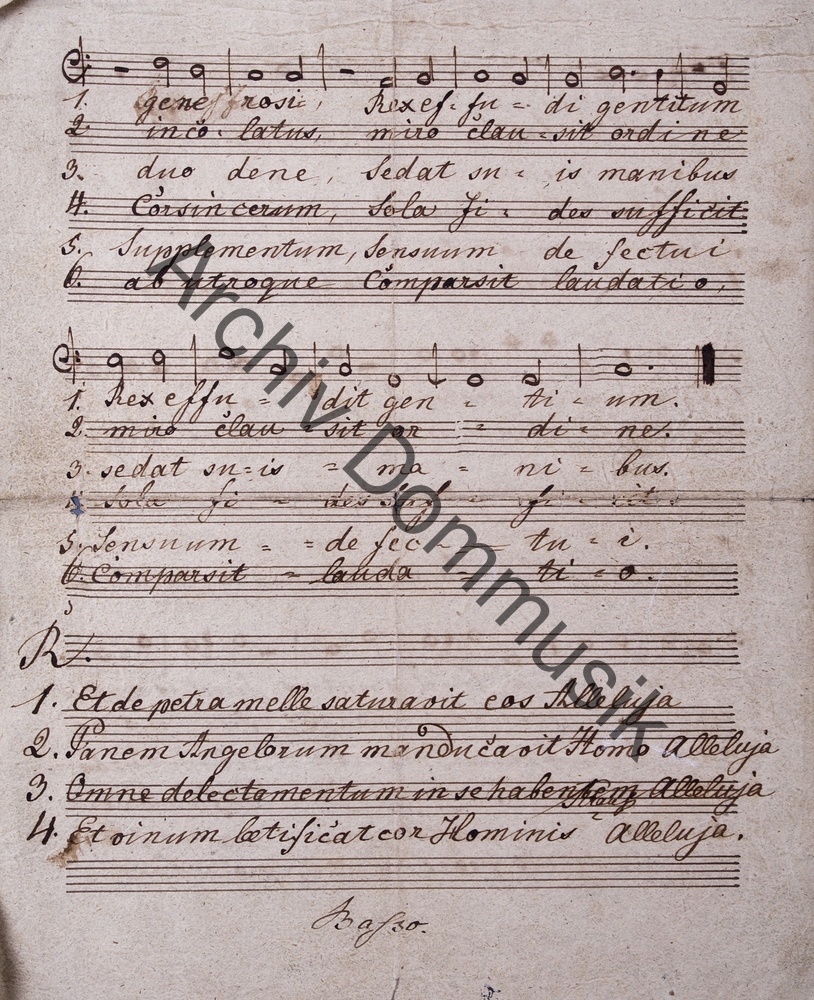 1. generosi, Rex effu = di gentium
2. inco - latus, miro clau = sit ordine
3. duo dene, Sedat su = is manibus
4. Corsincerum, Sola fi = des sufficit
5. Supplementum, Sensuum de fectui
6. ab utroque Comparsit laudatio,
1. Rex effu = dit gen = ti = um.
2. miro clau = sit or = di = ne.
3. sedat su=is = ma = ni = bus.
4. Sola fi = des suf = fi = cit.
5. Sensuum = = de fec = tu = i.
6. Comparsit = lauda = ti = o.
R.
1. Et de petra melle saturavit eos Alleluja
2. Panem Angelorum manducavit Homo Alleluja
3. Omne delectamentum in se habentem Alleluja
4. Et vinum lætificat cor Hominis Alleluja.
Basso.
Archiv Dommusik